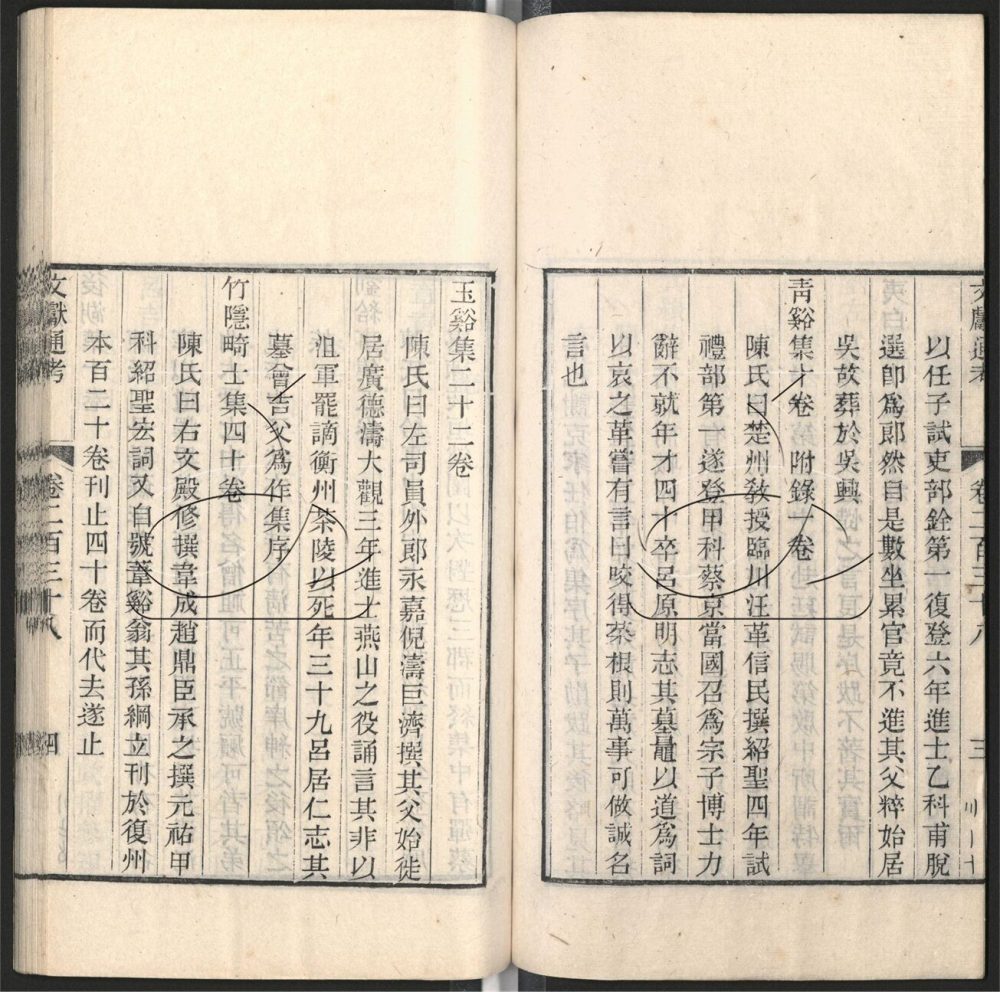 文獻通考 卷二百三十八 三
以任子試吏部銓第一復登六年進士乙科甫脫
選卽爲郎然自是數坐累官竟不進其父粹始居
吳故葬於吳興
青谿集十卷附錄一卷
陳氏曰楚州敎授臨川汪革信民撰紹聖四年試
禮部第一遂登甲科蔡京當國召爲宗子博士力
辭不就年才四十卒呂原明志其墓且以道爲詞
以哀之革嘗有言曰咬得菜根則萬事可做誠名
言也
玉谿集二十二卷
陳氏曰左司員外郎永嘉倪濤巨濟撰其父始徙
居廣德濤大觀三年進士燕山之役誦言其非以
沮軍罷謫衡州茶陵以死年三十九呂居仁志其
墓曾吉父爲作集序
竹隱畸士集四十卷
陳氏曰右文殿修撰韋成趙鼎臣承之撰元祐甲
科紹聖宏詞又自號葦谿翁其孫綱立刊於復州
本百二十卷刊止四十卷而代去遂止
文獻通考 卷二百三十八 四